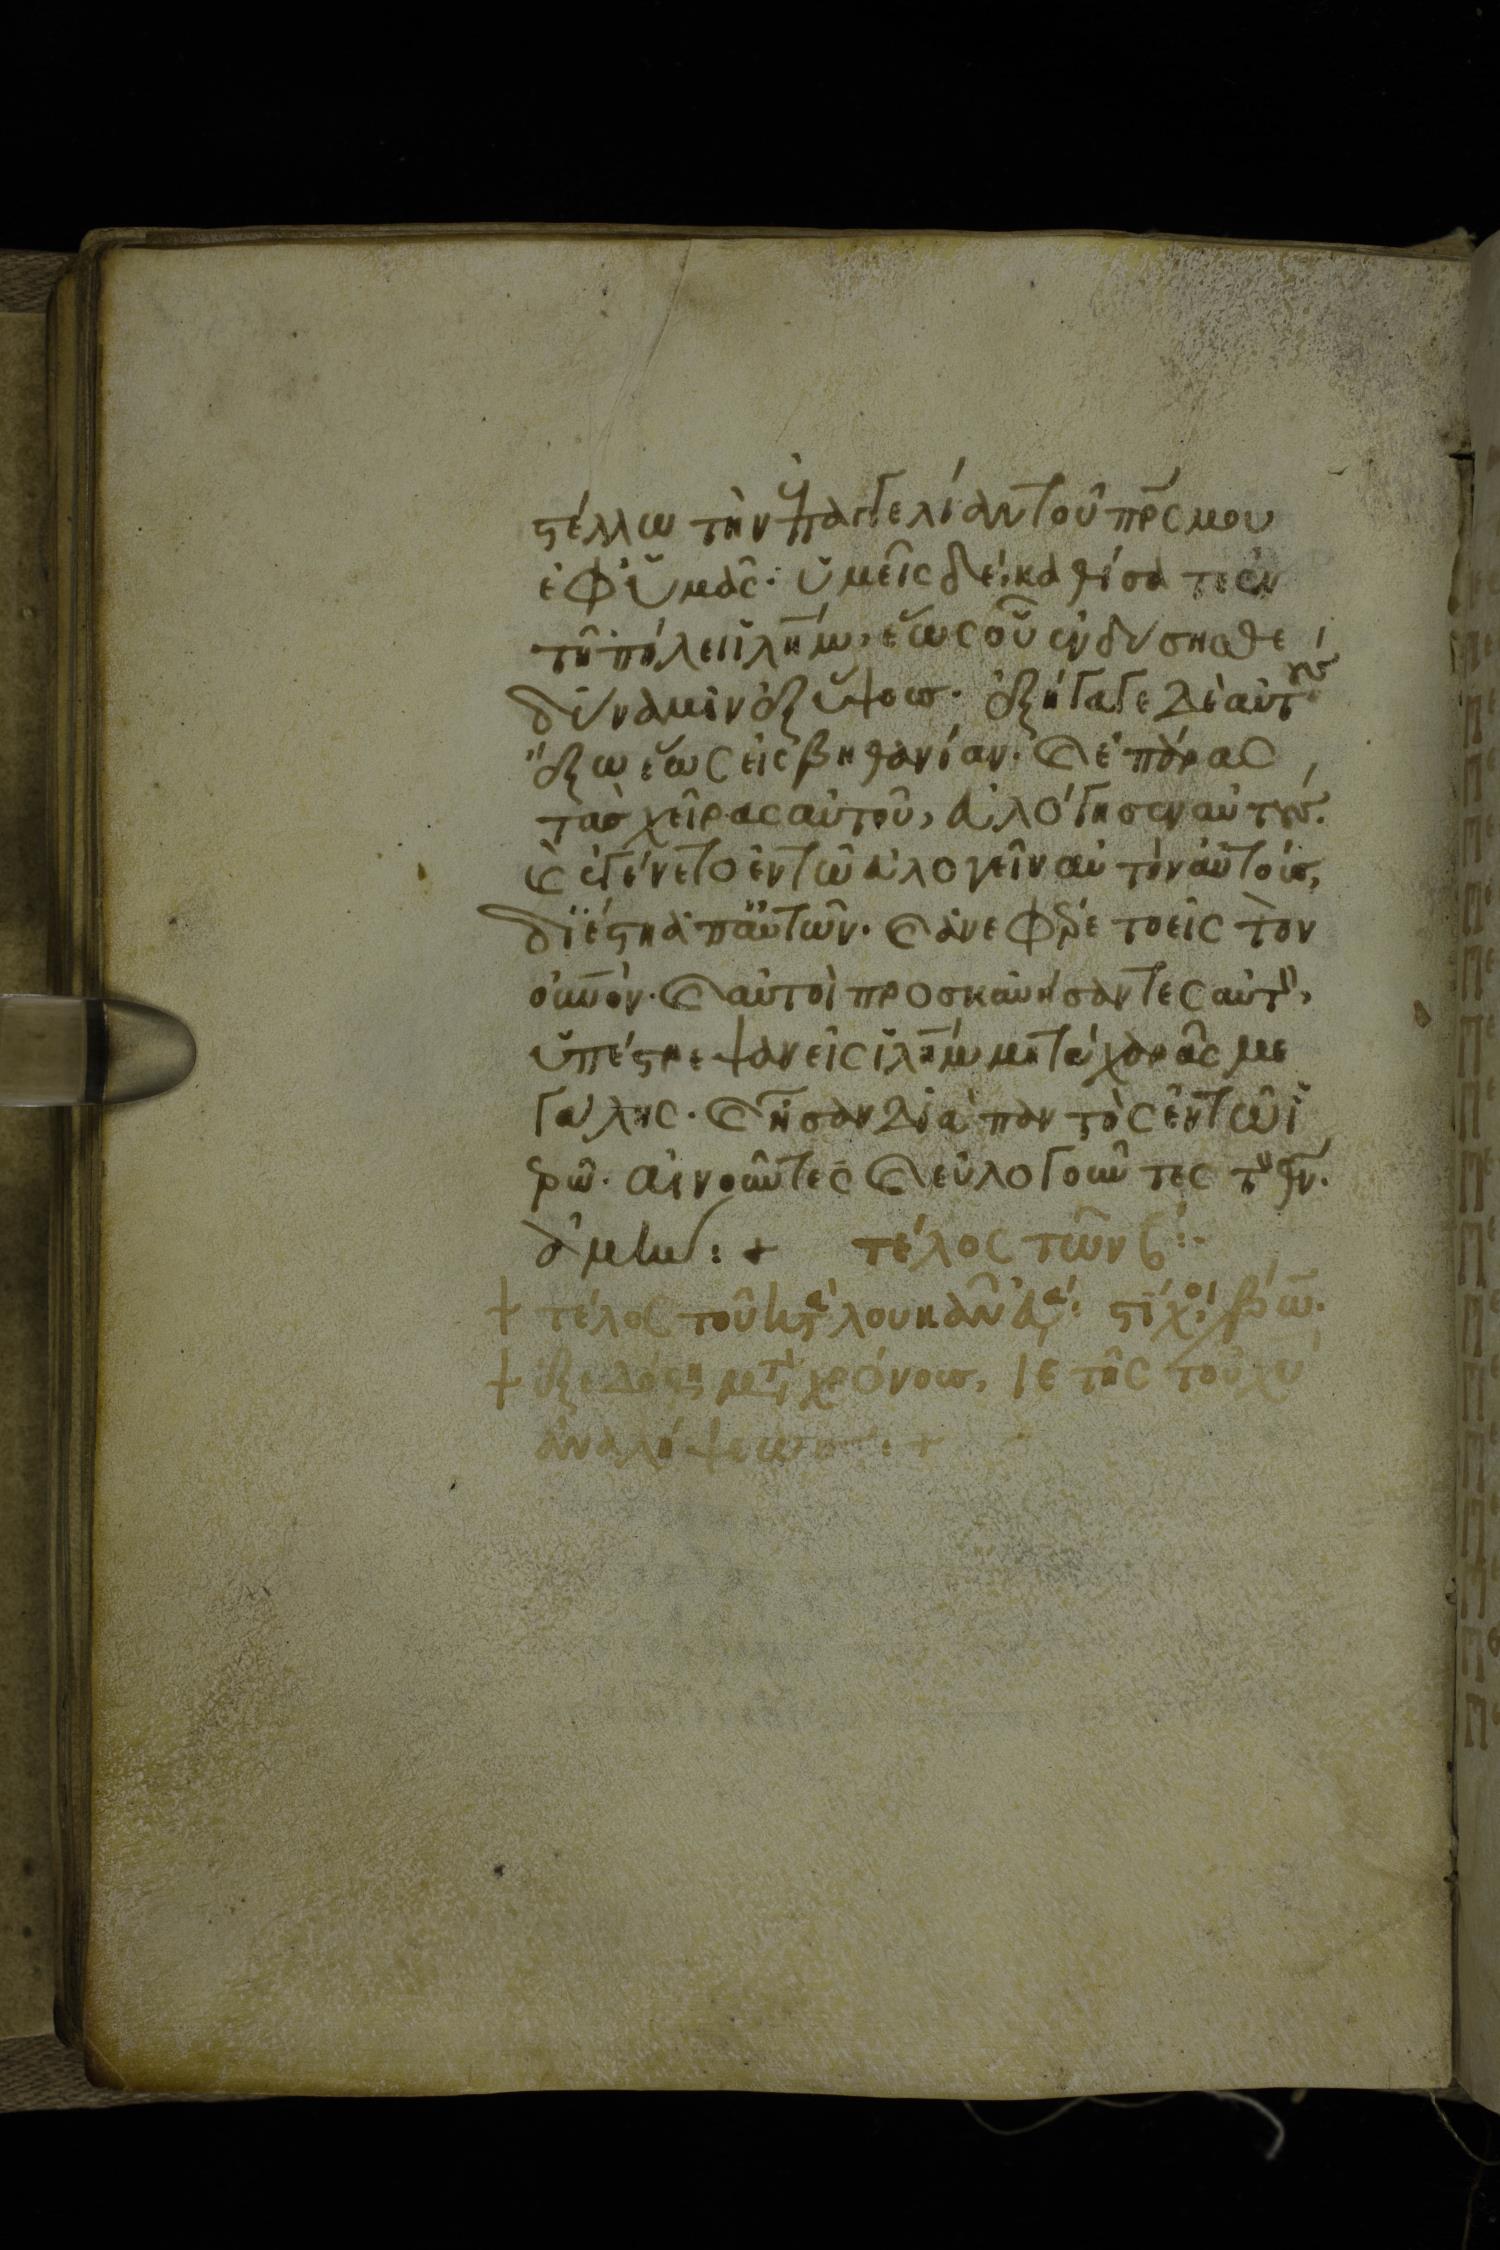 στέλλω τὴν ἐπαγγελίαν τοῦ πρς μου
ἐφ' ὑμᾶς· ὑμεῖς δὲ, καθίσατε ἐν
τῆ πόλει ἰλημ, ἕως οὗ ἐνδύσησθε
δύναμιν ἐξ ὕψους· ἐξήγαγε δὲ αὐτοὺς
ἔξω ἕως εἰς βηθανίαν· καὶ ἐπάρας
τὰς χεῖρας αὐτοῦ, εὐλόγησεν αὐτούς.
καὶ ἐγένετο ἐν τῶ εὐλογεῖν αὐτὸν αὐτοὺς,
διέστη ἀπ' αὐτῶν· καὶ ἀνεφέρετο εἰς τὸν
οὐνον· καὶ αὐτοὶ προσκυνήσαντες αὐτὸν,
ὑπέστρεψαν εἰς ἰλημ μετὰ χαρᾶς με
γάλης· καὶ ἦσαν διὰ παντὸς ἐν τῶ ἱ
ερῶ· αἰνοῦντες καὶ εὐλογοῦντες τὸν θν.
ἀμήν: + τέλος τῶν
+ τέλος τοῦ κατὰ λουκᾶν εὐα: στίχοι βω.
+ ἐξεδόθη μετὰ χρόνους, ιε τῆς τοῦ χυ
ἀναλήψεως: +